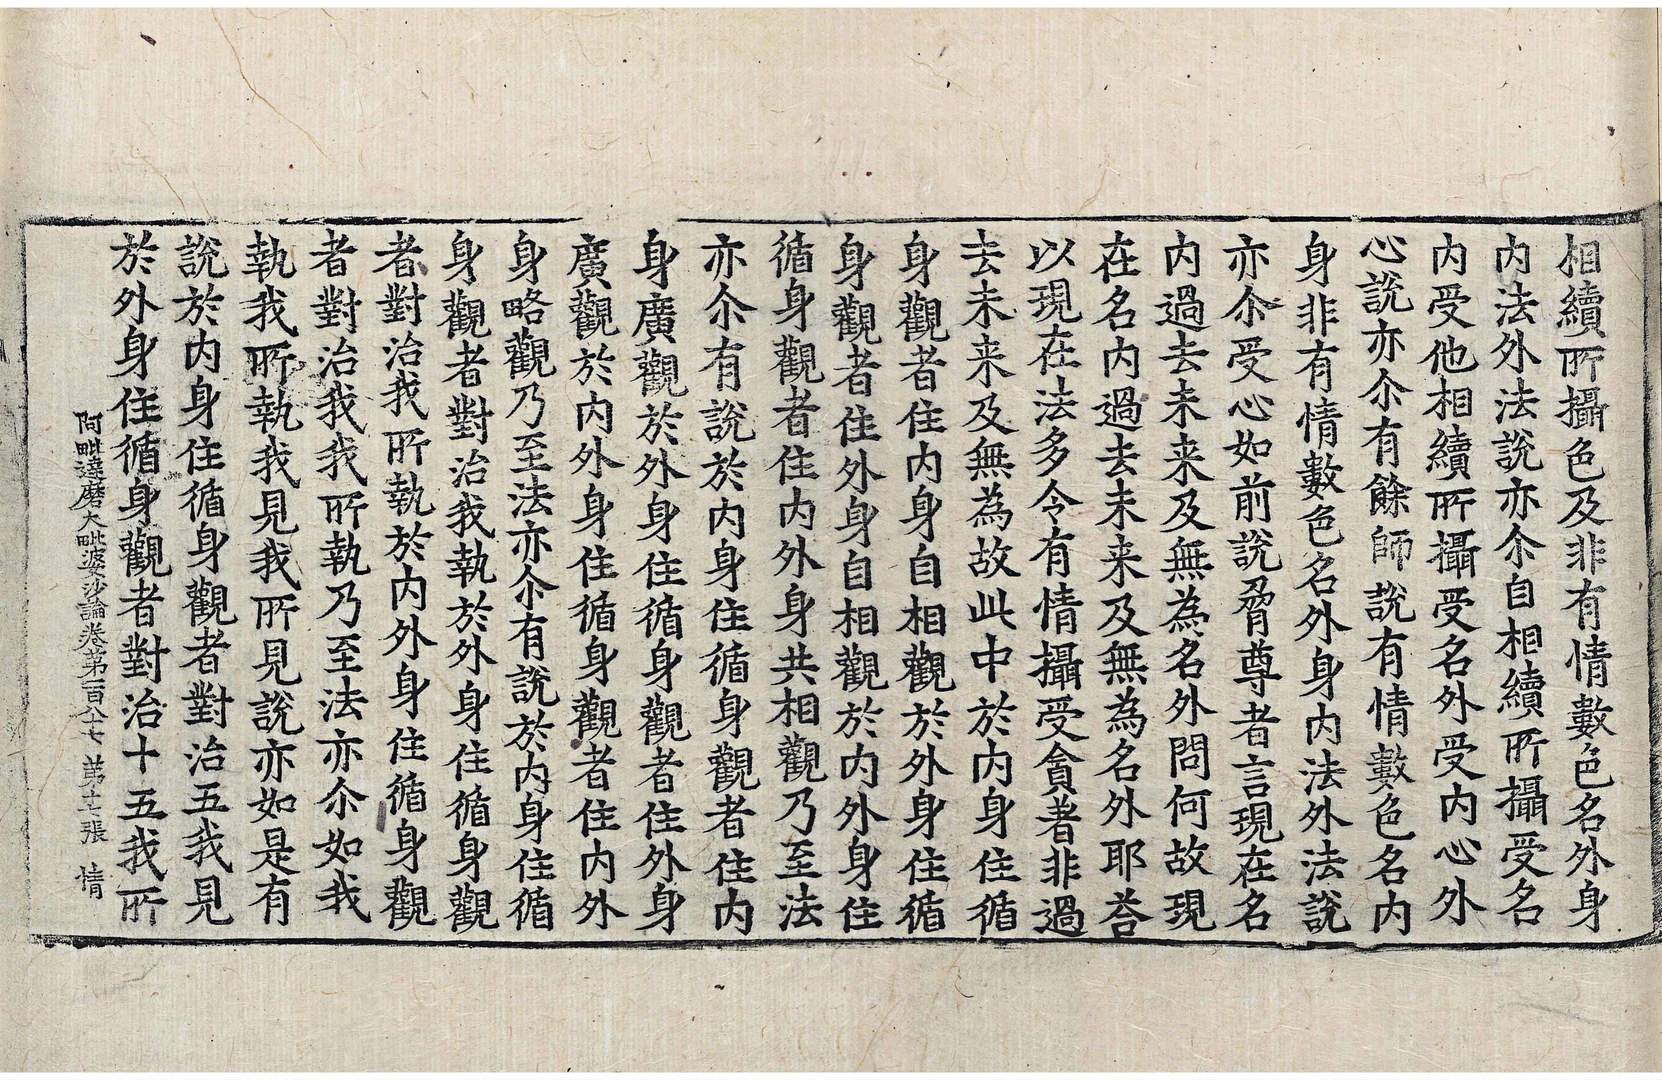 相續所攝色及非有情數色名外身
内法外法說亦尒自相續所攝受名
内受他相續所攝受名外受内心外
心說亦尒有餘師說有情數色名内
身非有情數色名外身内法外法說
亦尒受心如前說脅尊者言現在名
内過去未来及無為名外問何故現
在名内過去未来及無為名外耶荅
以現在法多令有情攝受貪著非過
去未来及無為故此中於内身住循
身觀者住内身自相觀於外身住循
身觀者住外身自相觀於内外身住
循身觀者住内外身共相觀乃至法
亦尒有說於内身住循身觀者住内
身廣觀於外身住循身觀者住外身
廣觀於内外身住循身觀者住内外
身略觀乃至法亦尒有說於内身住循
身觀者對治我執於外身住循身觀
者對治我所執於内外身住循身觀
者對治我我所執乃至法亦尒如我
執我所執我見我所見說亦如是有
說於内身住循身觀者對治五我見
於外身住循身觀者對治十五我所
阿毗達磨大毗婆沙論卷第一百八十七 第十七張 情